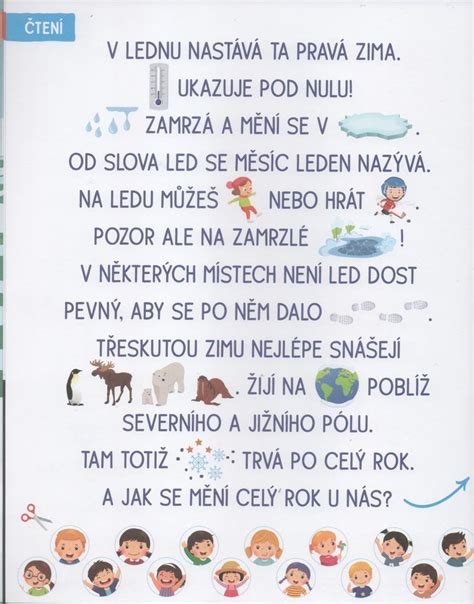 ČTENÍ
V LEDNU NASTÁVÁ TA PRAVÁ ZIMA.
UKAZUJE POD NULU!
ZAMRZÁ A MĚNÍ SE V .
OD SLOVA LED SE MĚSÍC LEDEN NAZÝVÁ.
NA LEDU MŮŽEŠ NEBO HRÁT
POZOR ALE NA ZAMRZLÉ !
V NĚKTERÝCH MÍSTECH NENÍ LED DOST
PEVNÝ, ABY SE PO NĚM DALO .
TŘESKUTOU ZIMU NEJLÉPE SNÁŠEJÍ
. ŽIJÍ NA POBLÍŽ
SEVERNÍHO A JIŽNÍHO PÓLU.
TAM TOTIŽ TRVÁ PO CELÝ ROK.
A JAK SE MĚNÍ CELÝ ROK U NÁS?